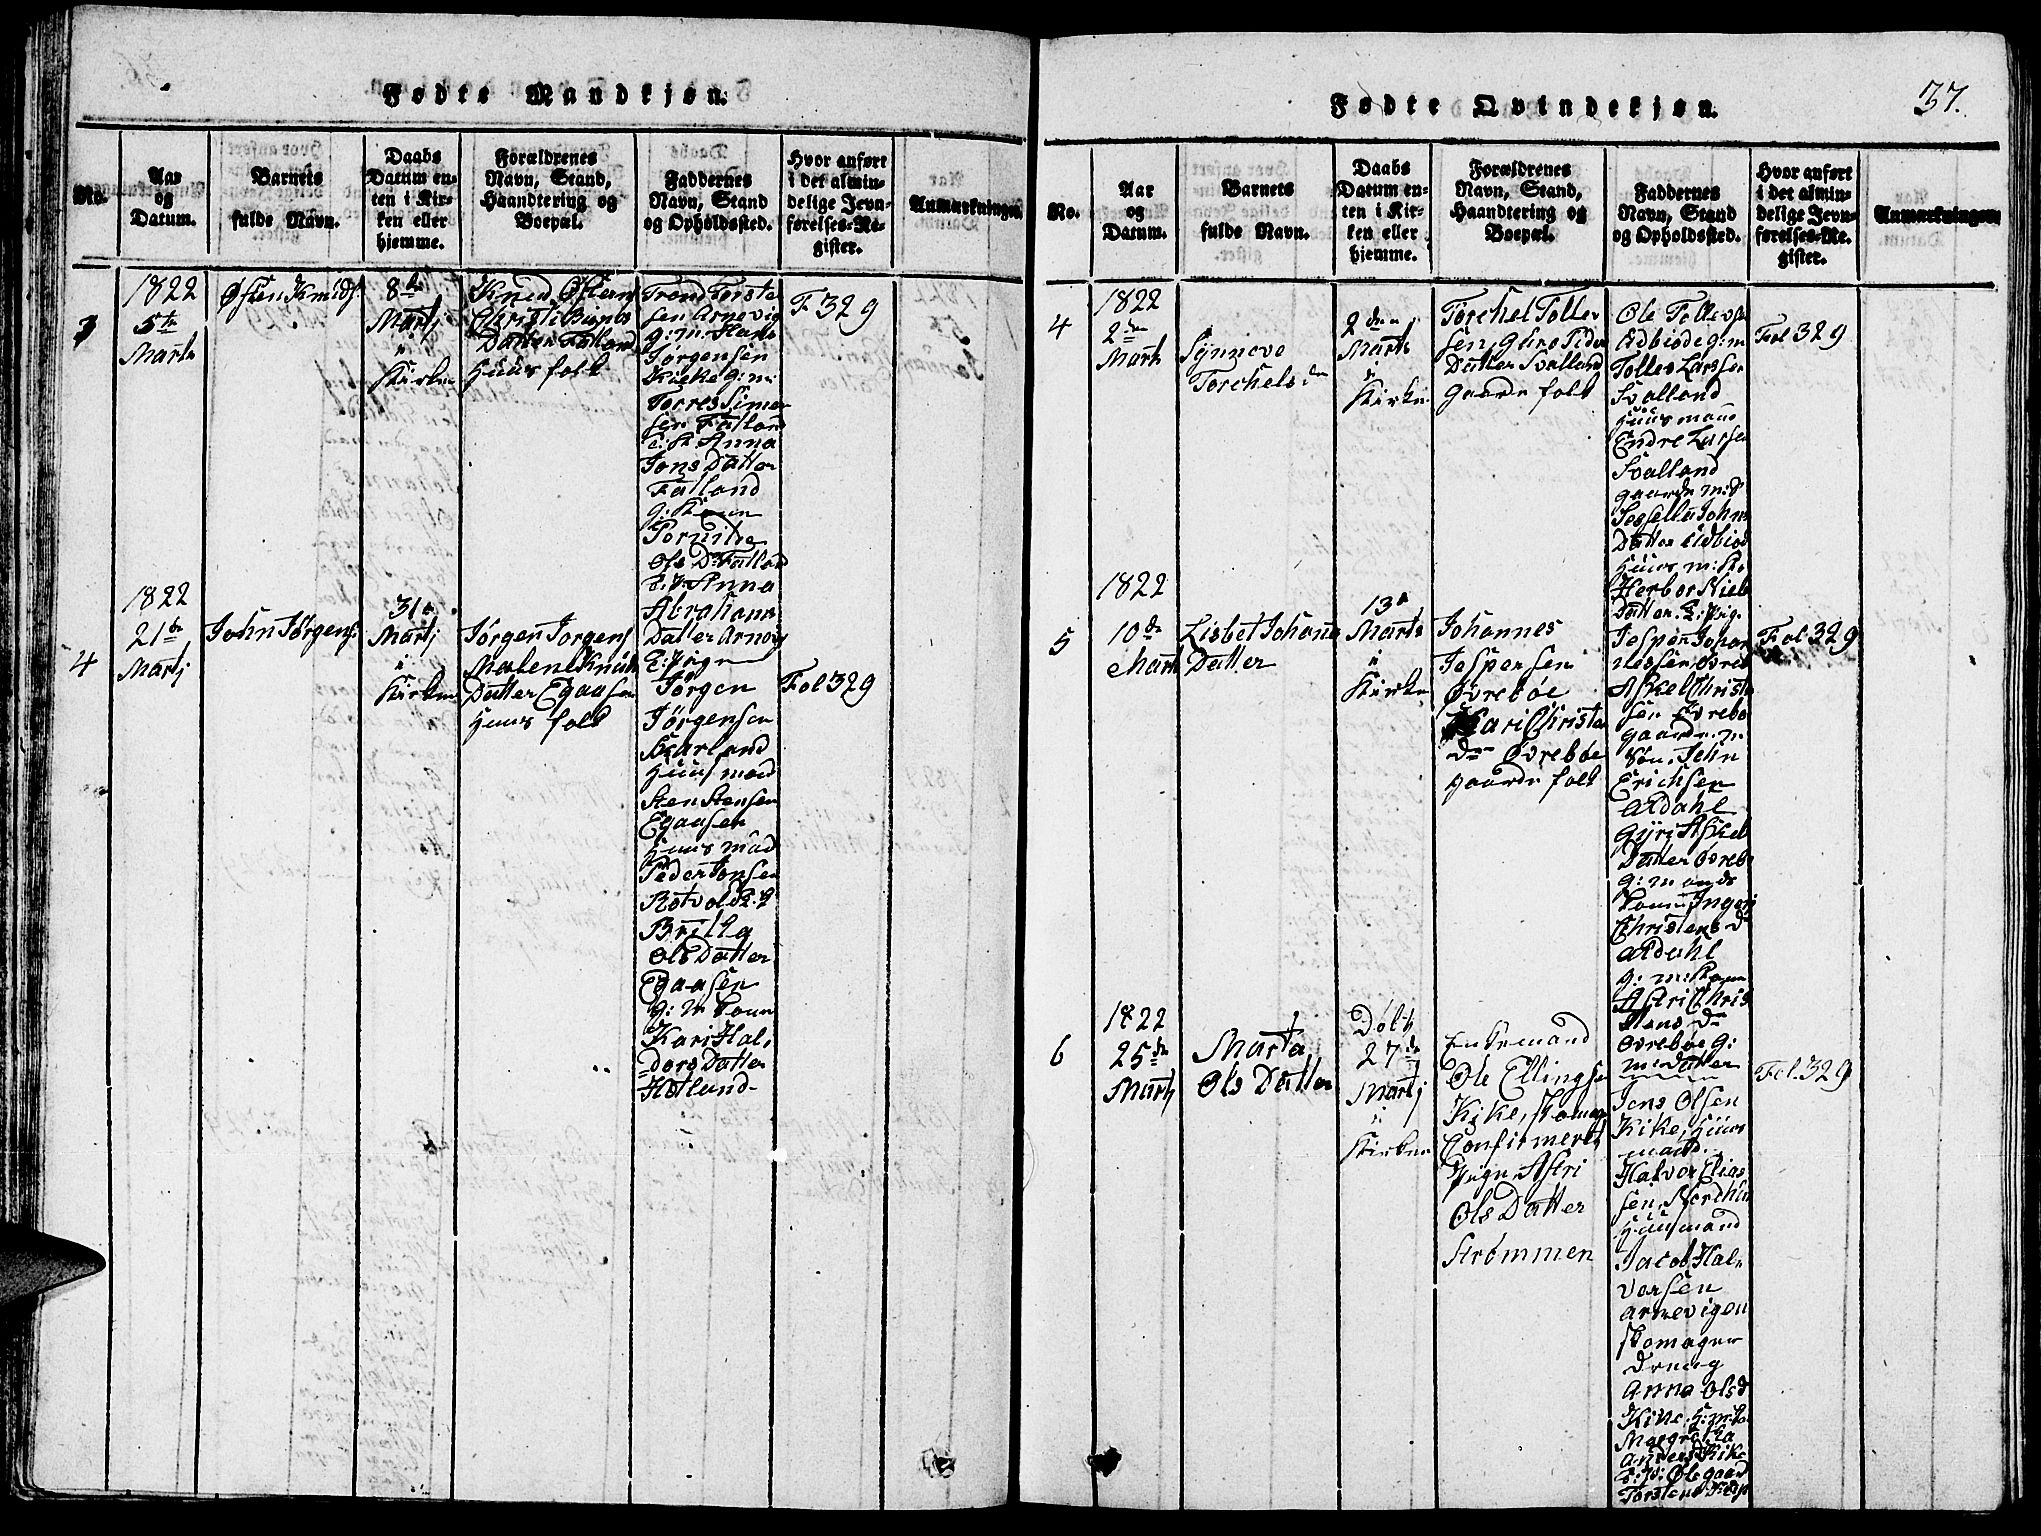 37.
Fødte Mandkjøn.
No.
Aar
og
Datum.
Barnets
fulde Navn.
Daabs
Datum en-
ten i Kir-
ken eller
hjemme.
Forældrenes
Navn, Stand,
Haandtering og
Boepæl.
Faddernes
Navn, Stand
og Opholdssted.
Hvor anført
i det almin-
delige Jevn-
førelses-Re-
gister.
Anmærkninger.
3
1822
5te
Marts
Østen Knuds.
8de
Martj
i
Kirken
Knud Østens
Christi
Datter Fatland
Huusfolk
Trond Torste
sen Arnevig
g: m. Hans
Jørgensen
Kieke g: m:
Torres Simen
sen Fatland
Anna
Jons Datter
Fatland
g: Kone
Pernilde
Ols Dr Fatland
Anna
Abrahams
Datter Arnevig
E: Pige
F 329
4
1822
21de
Martj
John Jørgens.
31te
Martj
i
Kirken
Jørgen Jorgens
Malene Knuds
Datter Egaasen
Huus folk
Jørgen
Jørgensen
Skarland
Huusmand
Sten Stensen
Egaasen
Huusmand
Peder Jonsen
Rotvold
Britha
Ols Datter
Egaasen
g: m Kone
Kari Hal-
dors Datter
Hetland
Fol 329
Fødte Qvindekjøn.
No.
Aar
og
Datum.
Barnets
fulde Navn.
Daabs
Datum en-
ten i Kir-
ken eller
hjemme.
Forældrenes
Navn, Stand,
Haandtering og
Boepæl.
Faddernes
Navn, Stand
og Opholdssted.
Hvor anført
i det almin-
delige Jevn-
førelses-Re-
gister.
Anmærkninger.
4
1822
2den
Marts
Synneve
Torchels dr
2den
Marts
i
Kirken
Torchel Tolles
sen, Guro Peders
Datter Svalland
Gaards folk
Ole Tollevsen
Eidbiode g: m
Tolles Larssen
Svalland
Huusmand
Endre Larsen
Svalland
gaards m: S
Sesselle Johns
Datter Eidbiod
Huus m: Ko
Herbor Niels
Datter E: Pig.
Fol 329
5
1822
10de
Marts
Lisbet Johans
Datter
13de
Marts
i
Kirken
Johannes
Jespersen
Øvrebøe
Kari Christens
dr Øvrebøe
gaards folk
Jesper Johan
nessen Øvreb
Askel Christen
sen Øvrebø
gaards m
Søn. John
Erichsen
Ældahl
Gyri Askels
Datter Øvrebø
g: mands
Kone Ingeri
Christens dr
Ældahl
g: m: Kone
Astri Chris
stens dr
Øvrebøe g:
m: datter
Fol 329
6
1822
25de
Martj
Marta
Ols Datter
Døbt
27de
Martj
i
Kirken
Enkemand
Ole Ellingsen
Kike, skomager
Confirmeret
Pigen Astri
Ols Datter
Strømmen
Jens Olsen
Kike, Huus
mand.
Halvor Elias
sen
Huusmand
Jacob Hal-
vorsen
Arnevigen
skomager
dreng
Anna Olsd
Kike. H: m: Ko
Magretha
Anders D Kike
Ølegaard
Torstens D
Fol. 329